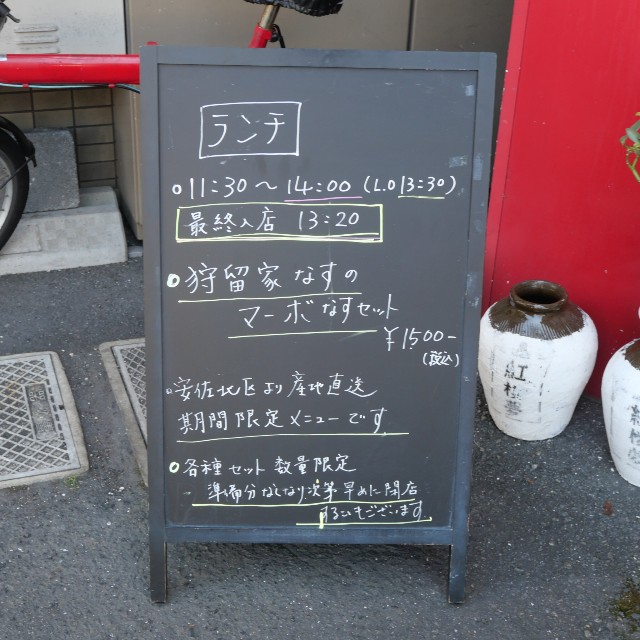 ランチ
○11:30～14:00 (L.O 13:30)
最終入店 13:20
○狩留家なすの
マーボなすセット
¥1500-
(税込)
○安佐北区より産地直送
期間限定メニューです
○各種セット数量限定
準備分なくなり次第早めに閉店
する日もございます
紅